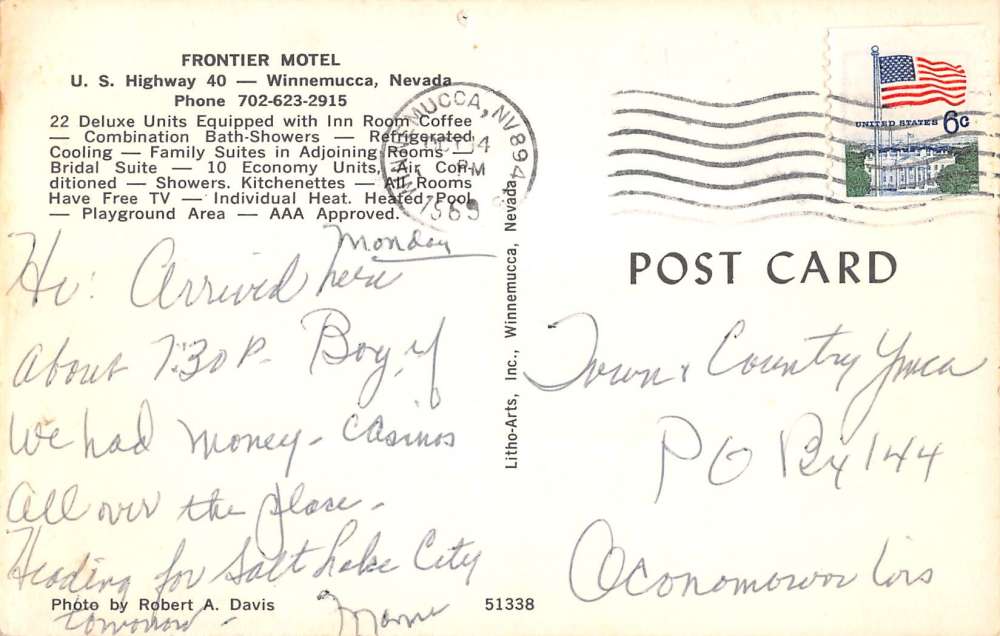 FRONTIER MOTEL
U. S. Highway 40 — Winnemucca, Nevada
Phone 702-623-2915
22 Deluxe Units Equipped with Inn Room Coffee
— Combination Bath-Showers — Refrigerated
Cooling — Family Suites in Adjoining Rooms —
Bridal Suite — 10 Economy Units, Air Con-
ditioned — Showers. Kitchenettes — All Rooms
Have Free TV — Individual Heat. Heated Pool
— Playground Area — AAA Approved.
WINNEMUCCA, NV 894
PM
1969
UNITED STATES 6c
Monday
Hi: Arrived here
about 7:30 P. Boy, if
We had money - casinos
all over the place -
Heading for Salt Lake City
tomorrow -
Litho-Arts, Inc., Winnemucca, Nevada
POST CARD
Town & Country Ymca
PO Bx 144
Oconomowoc Wis
Photo by Robert A. Davis
51338